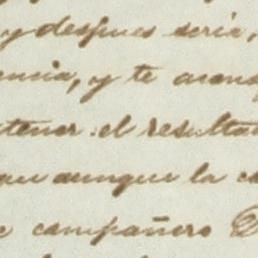 y despues seria,
encia, y te acons
tener el resulta
que aunque la c
e compañero D